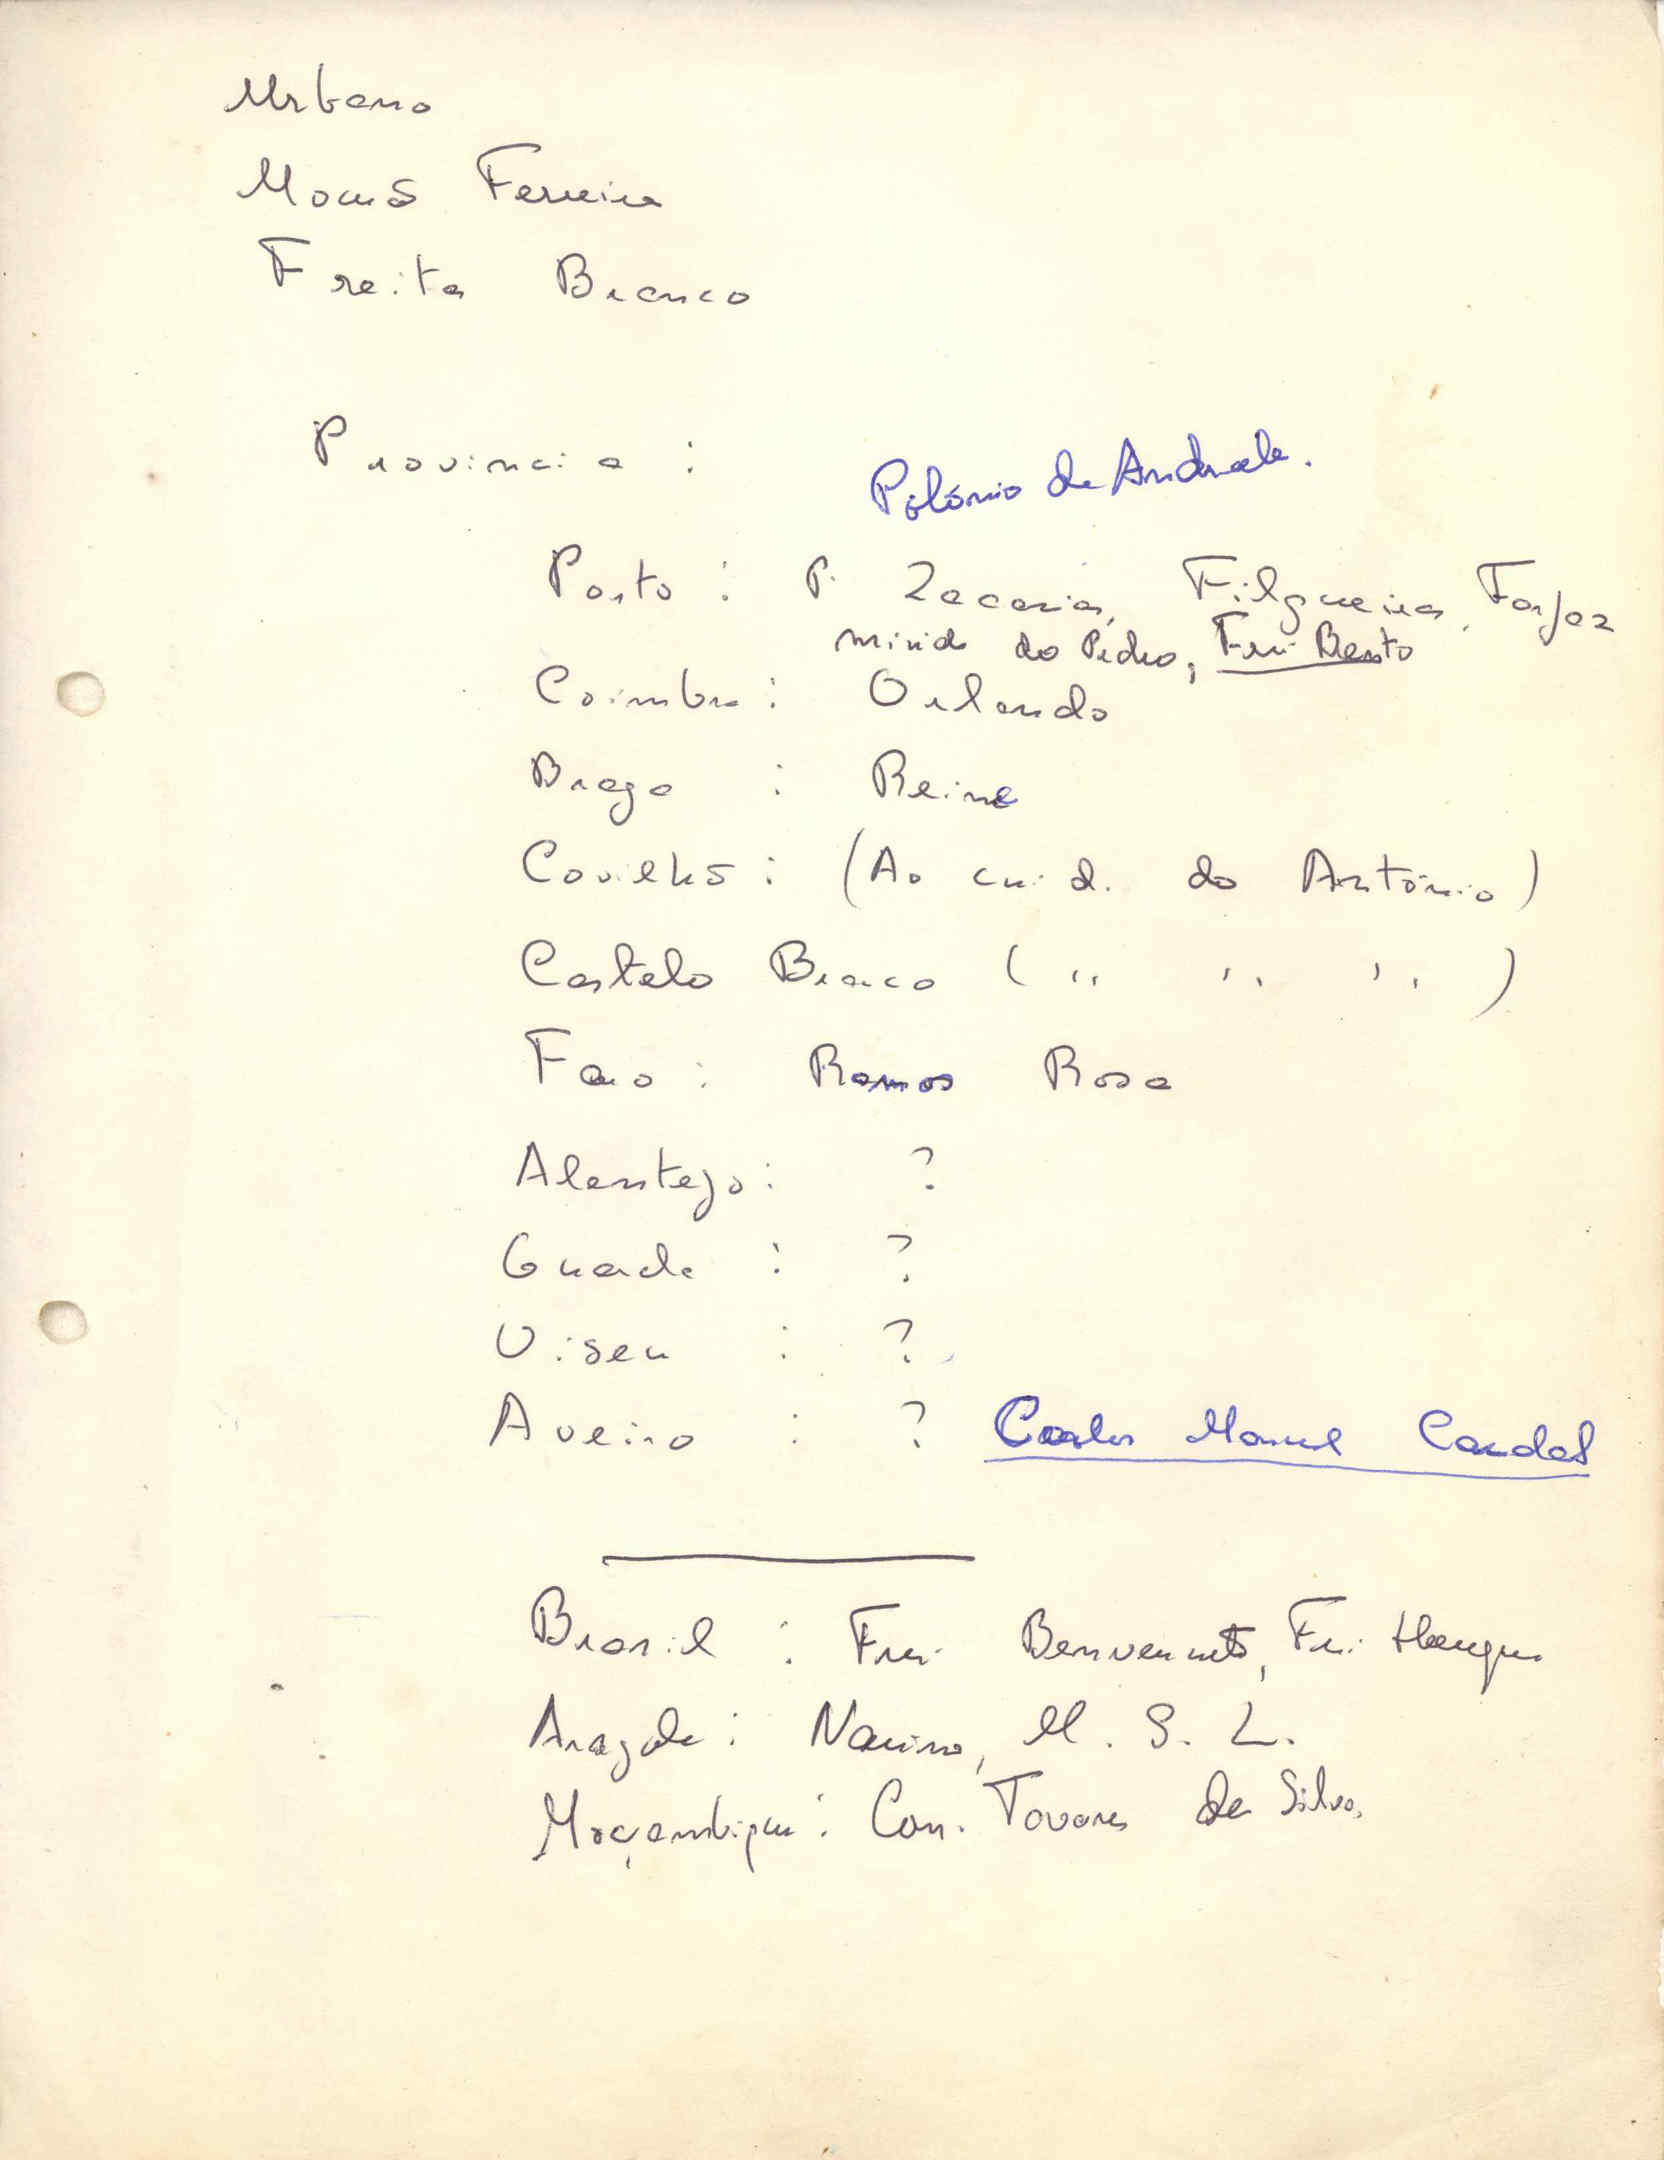 Urbano
Mourão Ferreira
Freitas Branco
Provincia :
Polónio de Andrade.
Porto : P. Zacarias, Filgueiras, Forjaz
do Pedro, Frei Bento
Coimbra : Orlando
Braga :
Covilhã : (Ao cuid. do António)
Castelo Branco ( " " " )
Faro : Ramos Rosa
Alentejo : ?
Guarda : ?
Viseu : ?
Aveiro : ? Carlos Manuel Candal
Brasil : Frei Benvenuto, Frei
: M. S. L.
Moçambique : Con. Tavares da Silva.